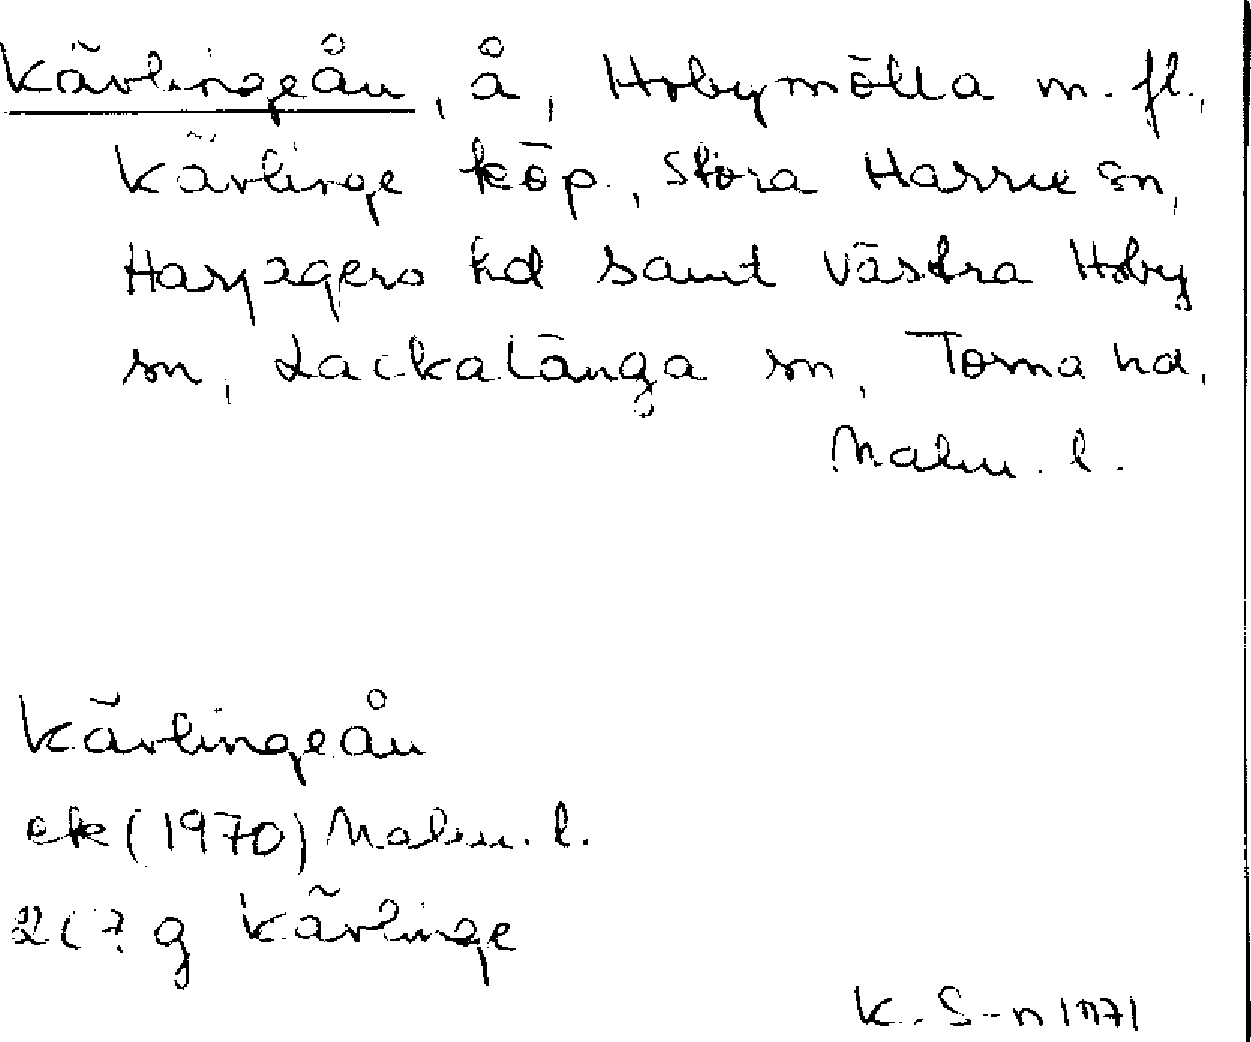 Kävlingeån, å, Hobymölla m.fl.,
Kävlinge köp., Stora Harrie sn,
Harjagers hd samt Västra Hoby
sn, Lackalänga sn, Torna hd,
Malm. l.
Kävlingeån
ek (1970) Malm. l.
2C7 g Kävlinge
K. S-n 1971